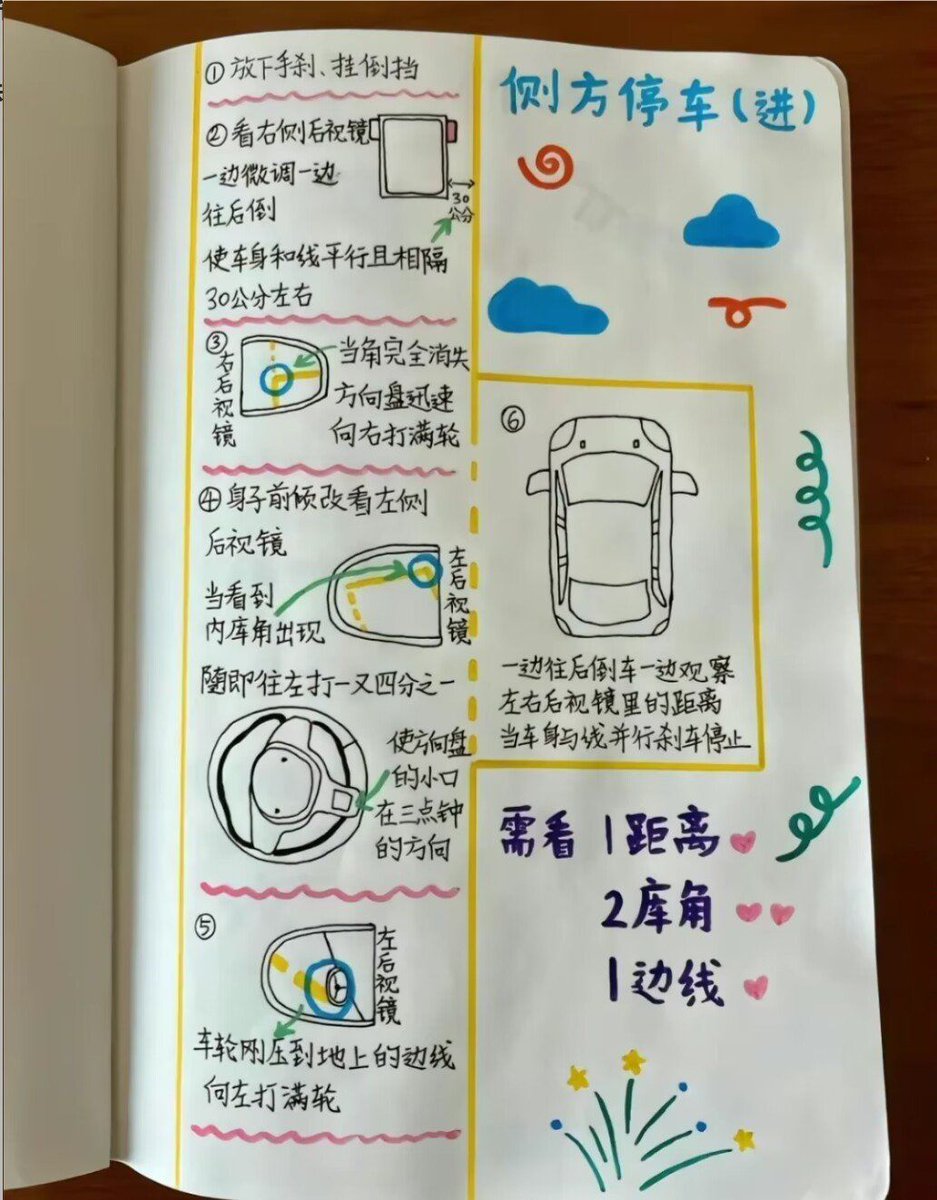 侧方停车(进)
①放下手刹、挂倒挡
②看右侧后视镜
一边微调一边
往后倒
30
公分
使车身和线平行且相隔
30公分左右
③
右后视镜
当角完全消失
方向盘迅速
向右打满轮
④身子前倾改看左侧
后视镜
左后视镜
当看到
内库角出现
随即往左打一又四分之一
使方向盘
的小口
在三点钟
的方向
⑤
左后视镜
车轮刚压到地上的边线
向左打满轮
⑥
一边往后倒车一边观察
左右后视镜里的距离
当车身与线并行刹车停止
需看 1距离
2库角
1边线